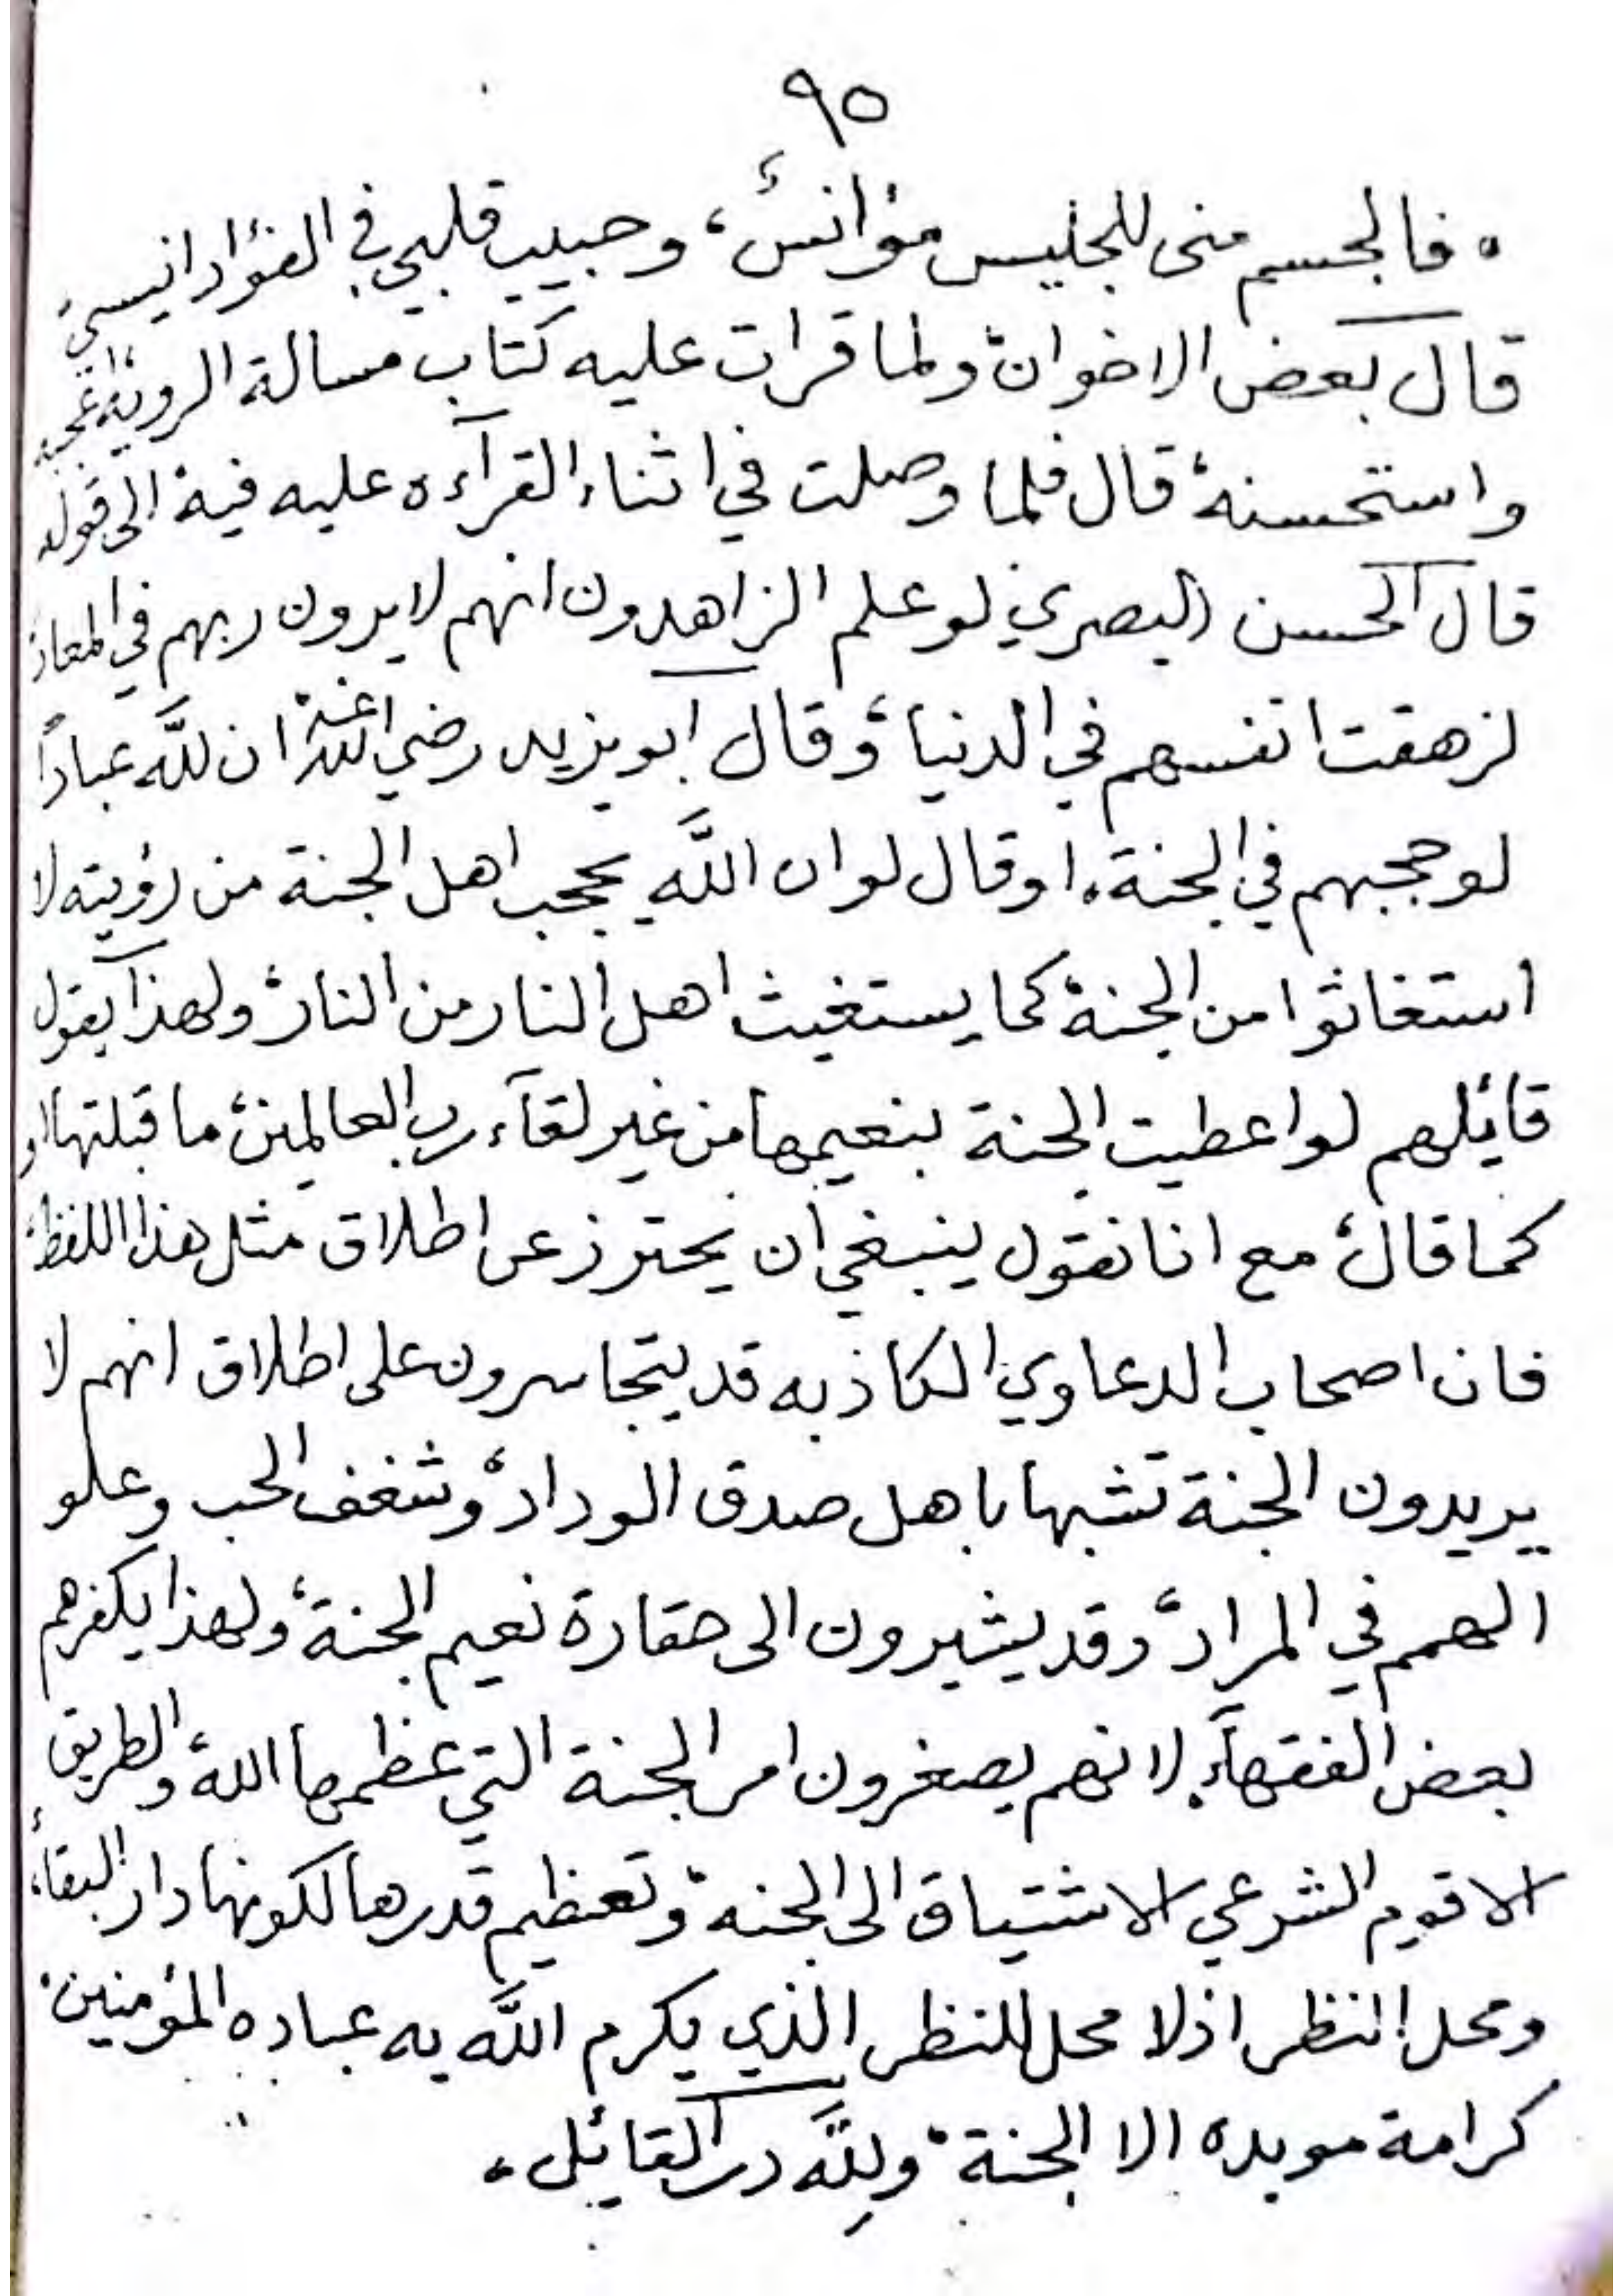 ٩٥
• فالجسم منى للجليس مؤانسٌ، وحبيب قلبي في الفؤاد انيسي
قال بعض الاخوان، ولما قرات عليه كتاب مسالة الروية اعجبه
واستحسنه، قال فلما وصلت في اثناء القرآءه عليه فيه، الى قوله
قال الحسن البصري لو علم الزاهدون انهم لا يرون ربهم في المعاد
لزهقت انفسهم في الدنيا، وقال ابو يزيد رضي الله عنه، ان للّه عباداً
لو حجبهم في الجنة. او قال لو ان اللّه يحجب اهل الجنة من رؤيته لا
استغاثوا من الجنة، كما يستغيث اهل النار من النار، ولهذا يقول
قائلهم لو اعطيت الجنة بنعيمها من غير لقآء رب العالمين، ما قبلتها او
كما قال، مع انا نقول ينبغي ان يحترز عن اطلاق مثل هذا اللفظ،
فان اصحاب الدعاوي الكاذبه قد يتجاسرون على اطلاق انهم لا
يريدون الجنة تشبها باهل صدق الوداد، وشغف الحب وعلو
الهمم في المراد، وقد يشيرون الى حقارة نعيم الجنة، ولهذا يكفرهم
بعض الفقهآء. لانهم يصغرون امر الجنة التي عظمها الله، والطريق
الاقوم الشرعي الاشتياق الى الجنه، وتعظيم قدرها لكونها دار البقاء،
ومحل النظر اذ لا محل للنظر الذي يكرم اللّه به عباده المؤمنين،
كرامة موبده الا الجنة، وللّه در القائل،